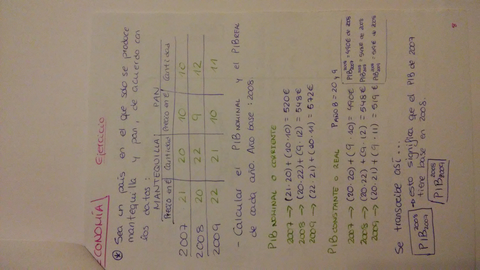 ECONOMÍA
Ejercicio
Sea un país en el que sólo se produce
mantequilla y pan, de acuerdo con
los datos:
MANTEQUILLA PAN
Precio en € Cantidad Precio en € Cantidad
2007 21 20 10 10
2008 20 22 9 12
2009 22 21 10 11
- Calcular el PIB NOMINAL y el PIB REAL
de cada año. Año base: 2008
PIB NOMINAL O CORRIENTE
2007 → (21·20)+(10·10) = 520€
2008 → (20·22)+(9·12) = 548€
2009 → (22·21)+(10·11) = 572€
PIB CONSTANTE O REAL P AÑO 8 = 20, 9
2007 → (20·20)+(9·10) = 490€ PIB 2008 2007 = 490€ de 2008
2008 → (20·22)+(9·12) = 548€ PIB 2008 2008 = 548€ de 2008
2009 → (20·21)+(9·11) = 519€ PIB 2008 2009 = 519€ de 2008
Se transcribe así ...
PIB 2008 2007 → esto significa qe el PIB de 2007
tiene base en 2008.
PIB 2008 2009